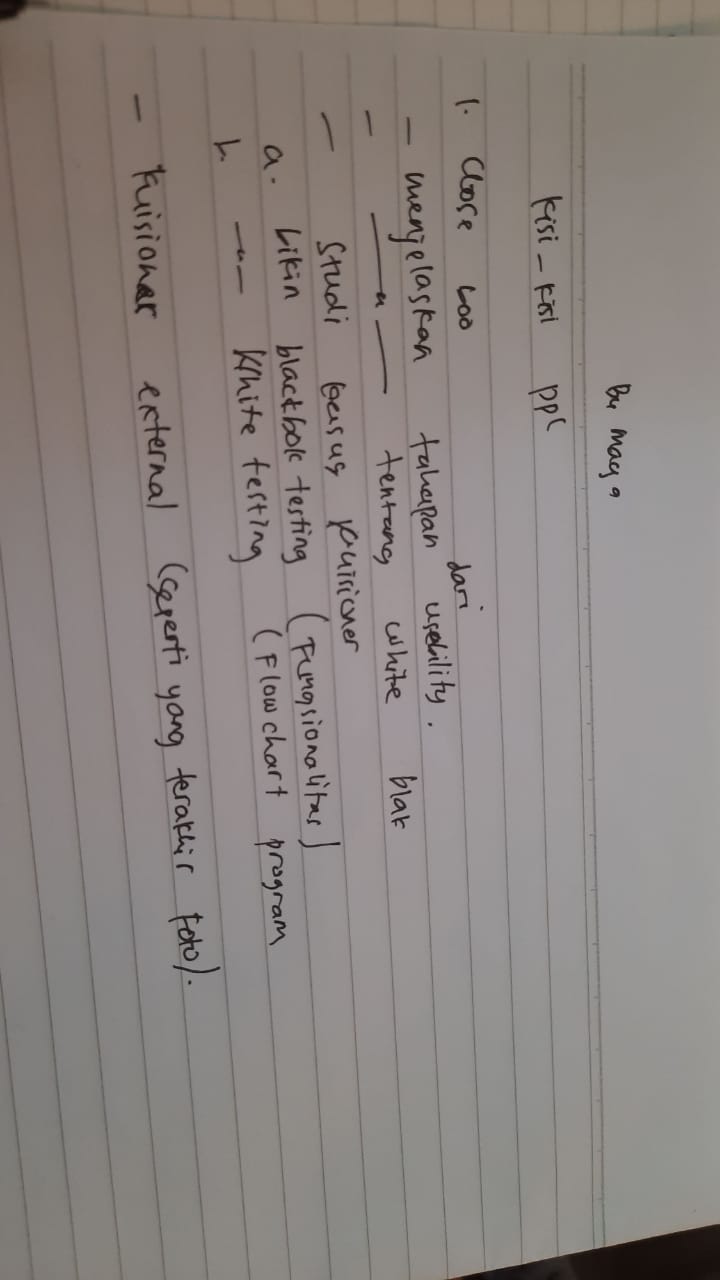 Bu maga
Kisi - Kisi PPL
1. Close boo
- menjelaskan tahapan dari usebility.
- —"— tentang white blak
- Studi kasus kuisioner
a. bikin blackbok testing (Fungsionalitas)
b. —"— White testing (Flowchart program
- kuisioner external (seperti yang terakhir Foto).